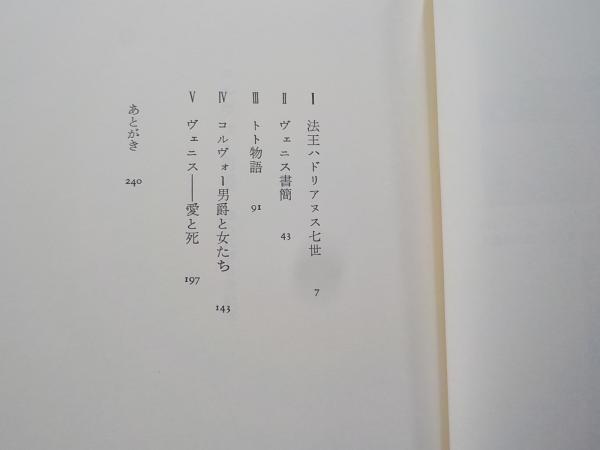 I 法王ハドリアヌス七世 7
II ヴェニス書簡 43
III トト物語 91
IV コルヴォー男爵と女たち 143
V ヴェニス――愛と死 197
あとがき 240